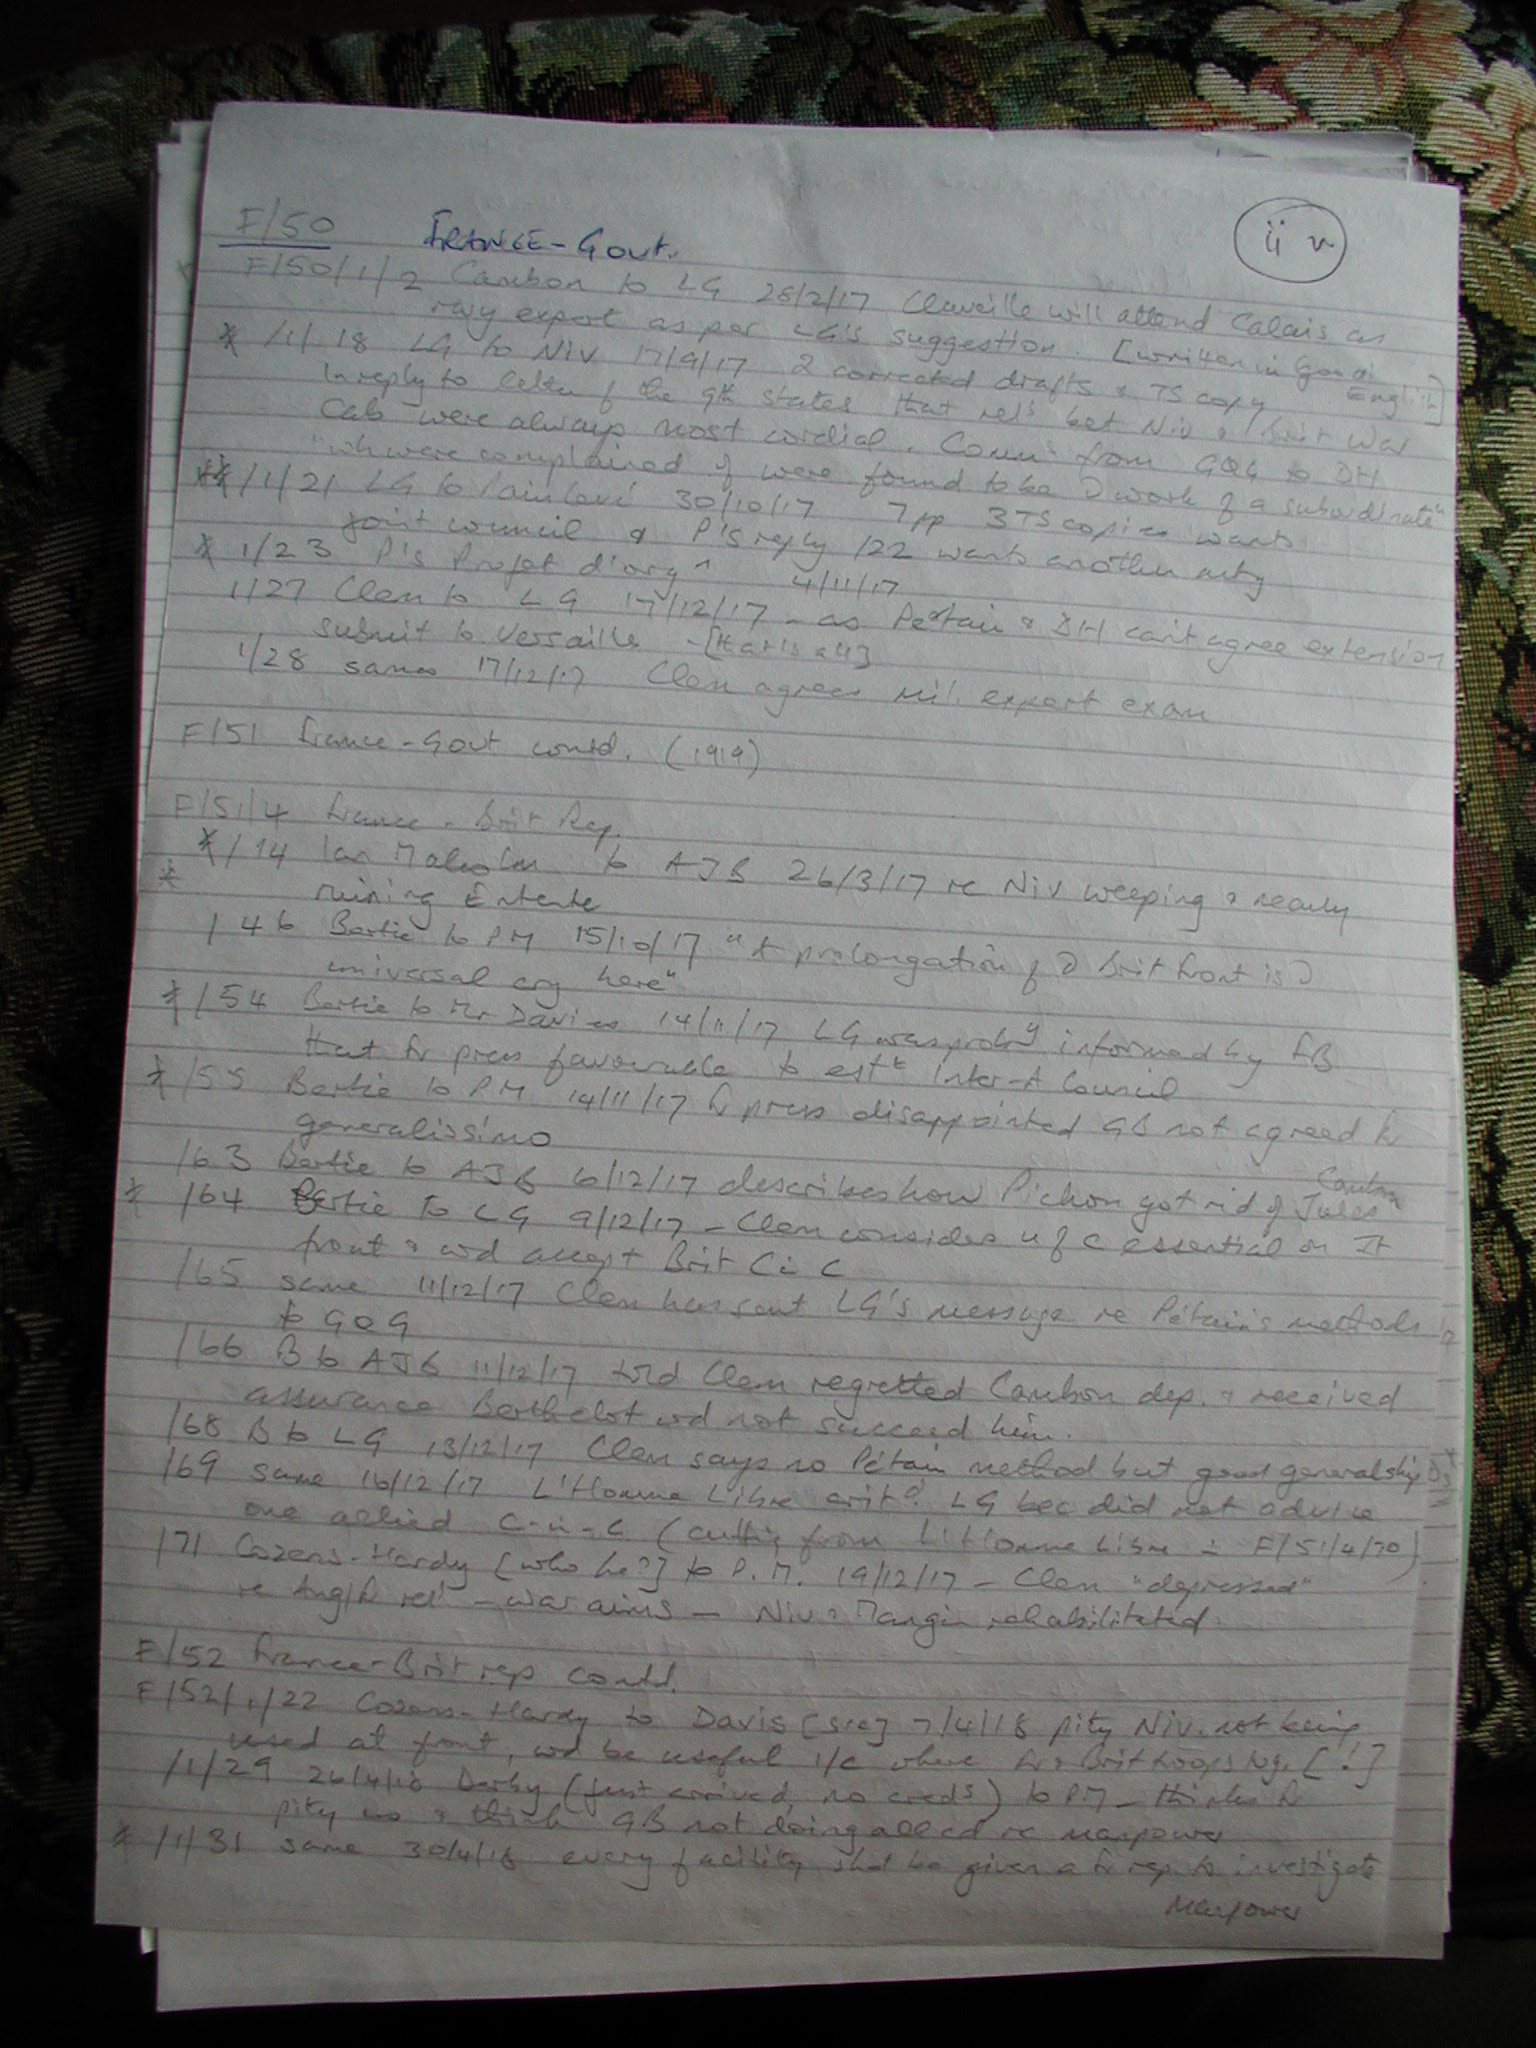 ii v
F/50 FRANCE - Govt.
F/50/1/2 Cambon to LG 28/2/17 Claveille will attend Calais as
rwy expert as per LG's suggestion. [written in good English]
* /1/18 LG to Niv 17/9/17 2 corrected drafts & TS copy
In reply to letter of the 9th states that rels bet Niv & Brit War
Cab were always most cordial. Comns from GQG to DH
"wh were complained of were found to be work of a subordinate"
** /1/21 LG to Painlevé 30/10/17 7pp 3 TS copies wants
joint council & P's reply /22 wants another mtg
* 1/23 P's Projet d'orgn 4/11/17
1/27 Clem to LG 17/12/17 - as Pétain & DH can't agree extension
submit to Versailles - [that is all]
1/28 same 17/12/17 Clem agrees mil. expert exam
F/51 France - Govt contd. (1919)
F/51/4 France - Brit Rep.
* /14 Ian Malcolm to AJB 26/3/17 re Niv weeping & nearly
* ruining Entente
/46 Bertie to PM 15/10/17 "A prolongation of Brit front is
universal cry here"
* /54 Bertie to Mr Davies 14/11/17 LG was probly informed by FB
that Fr press favourable to estt Inter-A Council
* /55 Bertie to P.M. 14/11/17 Fr press disappointed GB not agreed to
generalissimo
/63 Bertie to AJB 6/12/17 describes how Pichon got rid of Jules Cambon
* /64 Bertie to LG 9/12/17 - Clem considers u of c essential on It
front & wd accept Brit C in C
/65 same 11/12/17 Clem has sent LG's message re Pétain's methods
to GQG
/66 B to AJB 11/12/17 told Clem regretted Cambon dep. & received
assurance Berthelot wd not succeed him.
/68 B to LG 13/12/17 Clem says no Pétain method but good generalship
/69 same 16/12/17 L'Homme Libre critd. LG bec did not advise
one allied C-in-C (cutting from L'Homme Libre = F/51/4/70)
/71 Cozens-Hardy [who he?] to P.M. 19/12/17 - Clem "depressed"
re Ang/Fr rels - war aims - Niv & Mangin rehabilitated.
F/52 France - Brit rep contd.
F/52/1/22 Cozens-Hardy to Davis [sic] 7/4/18 pity Niv. not being
used at front, wd be useful i/c where Fr & Brit troops tog. [!]
/1/29 26/4/18 Derby (just arrived, no creds) to PM - thinks Fr
pity us & think GB not doing all cd re manpower
* /1/31 same 30/4/18 every facility shd be given a Fr rep. to investigate
manpower